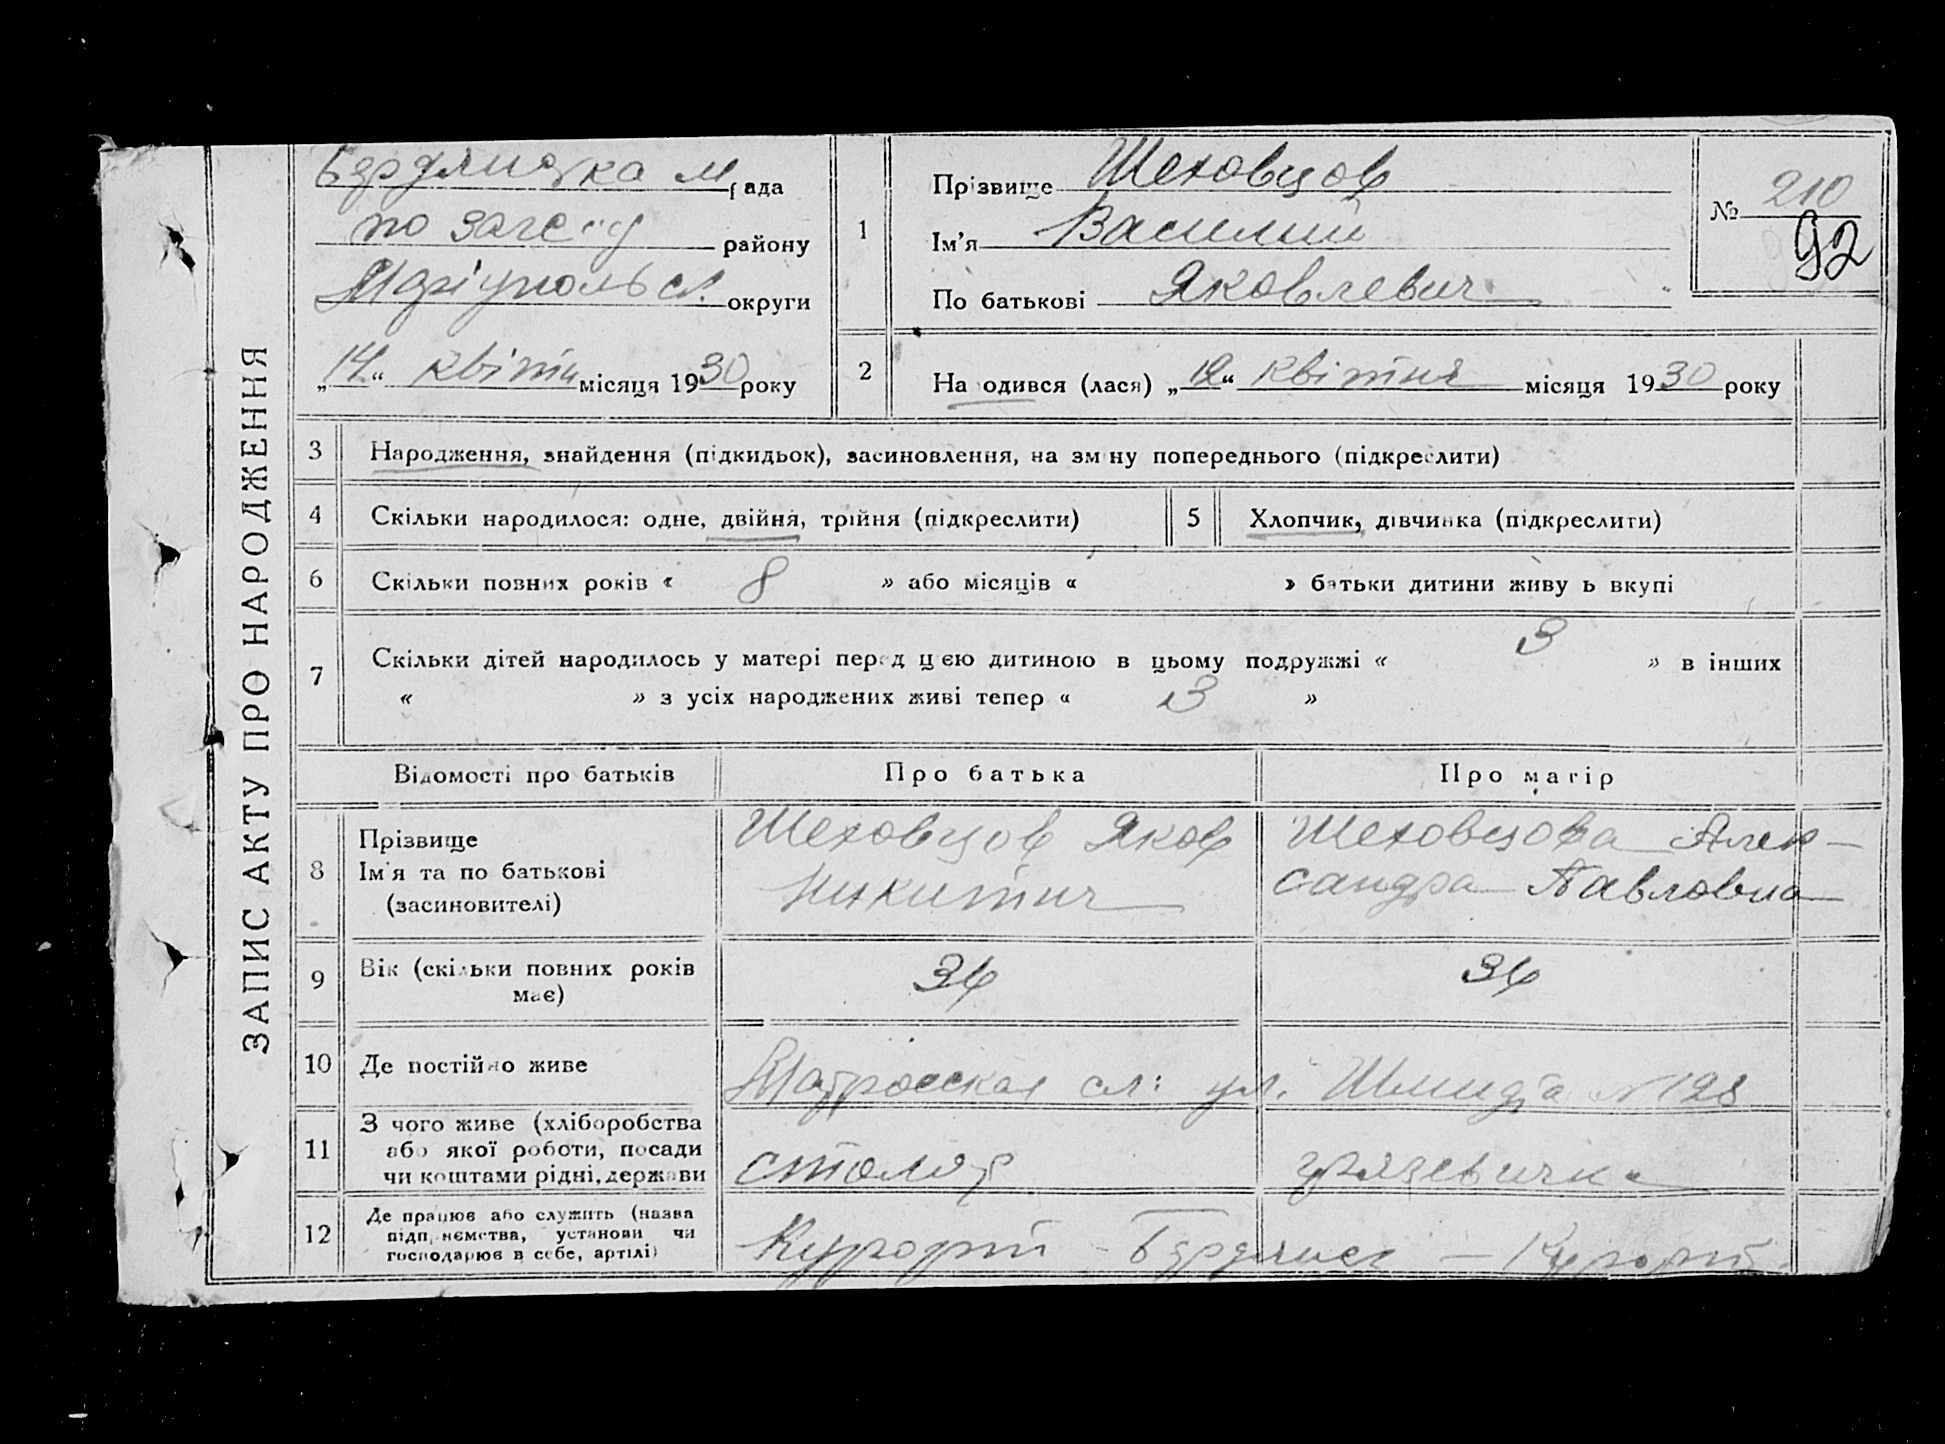 ЗАПИС АКТУ ПРО НАРОДЖЕННЯ
Бердянська м рада
по загсу району
Маріупольськ. округи
„14“ квітн місяця 1930 року
1
Прізвище Шеховцов
Ім'я Василий
По батькові Яковлевич
№ 210
92
2
На одився (лася) „12“ квітня місяця 1930 року
3 Народження, знайдення (підкидьок), засиновлення, на зміну попереднього (підкреслити)
4 Скільки народилося: одне, двійня, трійня (підкреслити)
5 Хлопчик, дівчинка (підкреслити)
6 Скільки повних років « 8 » або місяців « » батьки дитини живу ь вкупі
7 Скільки дітей народилось у матері перед цією дитиною в цьому подружжі « 3 » в інших
« » з усіх народжених живі тепер « 3 »
Відомості про батьків Про батька Про матір
8 Прізвище
Ім'я та по батькові
(засиновителі)
Шеховцов Яков
Никитич
Шеховцова Алек-
сандра Павловна
9 Вік (скільки повних років
має)
34 34
10 Де постійно живе Матросская сл: ул. Шмидта N 128
11 З чого живе (хліборобства
або якої роботи, посади
чи коштами рідні, держави
столяр грязевичка
12 Де працює або служить (назва
підприємства, установи чи
господарює в себе, артілі)
Курорт - Бердянск - Курорт.